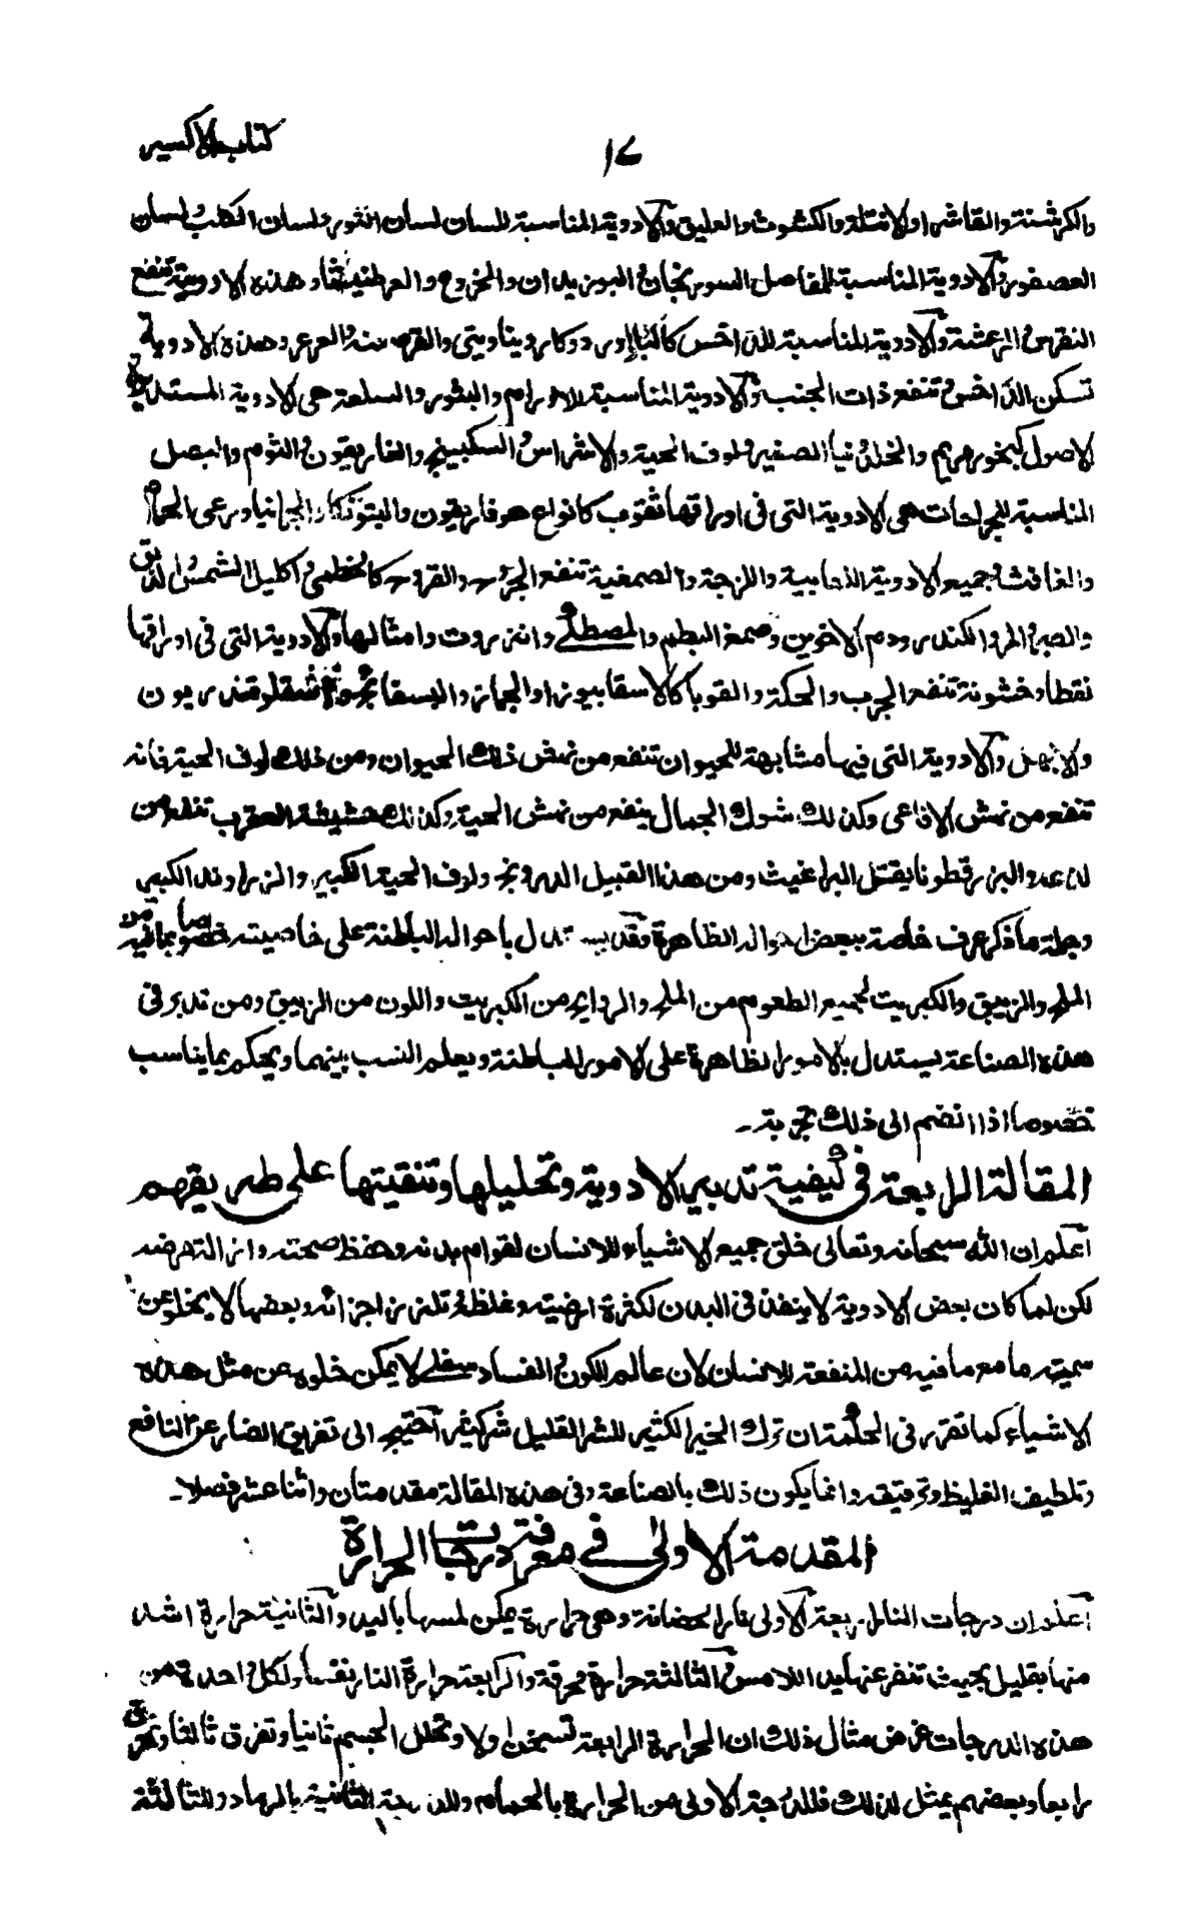 كتاب الاكسير
١٧
والكرشنة والقاشرا والافتلة والكشوث والعليق والادوية المناسبة للسان لسان الثور ولسان الكلب ولسان
العصفور والادوية المناسبة للمفاصل السورنجان والبوزيدان والخروع والعرطنيثا وهذه الادوية تنفع
النقرس والرعشة والادوية المناسبة للداخس والعرعر وهذه الادوية
تسكن الداخس وتنفع ذات الجنب والادوية المناسبة للاورام والبثور والسلعة هي الادوية المستديرة
الاصول كبخور مريم والصغير ولوف الحية والاشراس والسكبينج والغاريقون والثوم والبصل
المناسبة للجراحات هي الادوية التي في اوراقها ثقوب كانواع هوفاريقون ورعي الحمام
والغافث وجميع الادوية اللعابية واللزجة والصمغية تنفع الجروح والقروح كالخطمي واكليل الشمس والدبق
والصبر والمر والكندر ودم الاخوين وصمغ البطم والمصطكى وانزروت وامثالها والادوية التي في اوراقها
نقط او خشونة تنفع الجرب والحكة والقوبا كالاسقابيوز
والابهل والادوية التي فيها مشابهة للحيوان تنفع من نهش ذلك الحيوان ومن ذلك لوف الحية فانه
تنفع من نهش الافاعي وكذلك شوك الجمال ينفع من نهش الحية وكذلك حشيشة العقرب تنفع من
لدغه والبزرقطونا يقتل البراغيث ومن هذا القبيل الدرونج ولوف الحية الكبير والزراوند الكبير
وجملة ما ذكر عرف خاصة ببعض احواله الظاهرة وقد يستدل باحواله الباطنة على خاصيته خصوصا بما فيه من
الملح والزيبق والكبريت لجميع الطعوم من الملح والروايح من الكبريت واللون من الزيبق ومن تدبر في
هذه الصناعة يستدل بالامور الظاهرة على الامور الباطنة ويعلم النسب بينهما ويحكم بما يناسب
خصوصا اذا انضم الى ذلك تجربة
المقالة الرابعة في كيفية تدبير الادوية وتحليلها وتنقيتها على طريقهم
اعلم ان الله سبحانه وتعالى خلق جميع الاشياء للانسان لقوام بدنه وحفظ صحته وازالة مرضه
لكن لما كان بعض الادوية لا ينفذ في البدن لكثرة ارضيته وغلظه وتلزز اجزائه وبعضها لا يخلو عن
سمية ما مع ما فيه من المنفعة للانسان لان عالم الكون والفساد سفلي لا يمكن خلوه عن مثل هذه
الاشياء كما تقرر في الحكمة ان ترك الخير الكثير للشر القليل شر كثير احتيج الى تفريق الضار عن النافع
وتلطيف الغليظ وترقيقه وانما يكون ذلك بالصناعة وفي هذه المقالة مقدمتان واثنا عشر فصلا
المقدمة الاولى في معرفة درجات الحرارة
اعلم ان درجات النار اربعة الاولى نار الحضانة وهي حرارة يمكن لمسها باليد والثانية حرارة اشد
منها بقليل بحيث تنفر عنها يد اللامس والثالثة حرارة محرقة والرابعة حرارة النار نفسها ولكل واحدة من
هذه الدرجات عرض مثال ذلك ان الحرارة الرابعة تسخن اولا وتحلل الجسم ثانيا وتفرق ثالثا وتحرق
رابعا وبعضهم يمثل لذلك فللدرجة الاولى من الحرارة بالحمام وللدرجة الثانية بالرماد وللثالثة